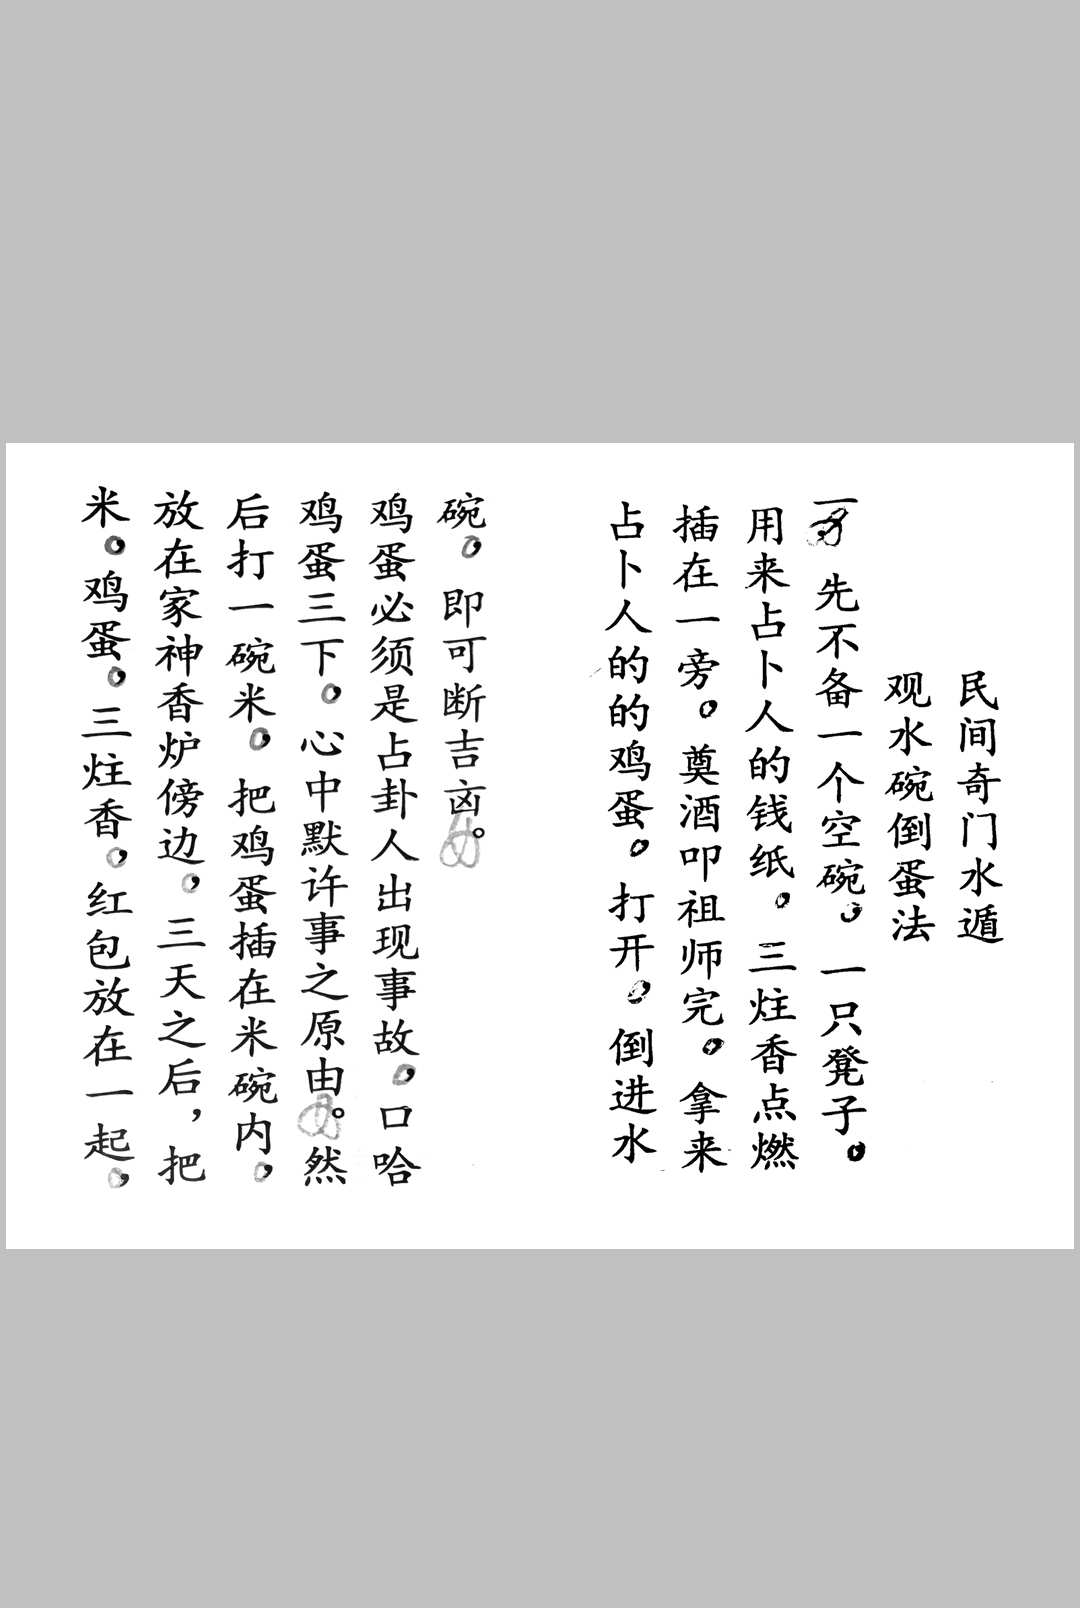 民间奇门水遁
观水碗倒蛋法
一，先不备一个空碗，一只凳子。
用来占卜人的钱纸，三炷香点燃
插在一旁。奠酒叩祖师完，拿来
占卜人的的鸡蛋，打开，倒进水
碗，即可断吉凶。
鸡蛋必须是占卦人出现事故，口哈
鸡蛋三下，心中默许事之原由。然
后打一碗米，把鸡蛋插在米碗内，
放在家神香炉傍边，三天之后，把
米，鸡蛋，三炷香，红包放在一起，